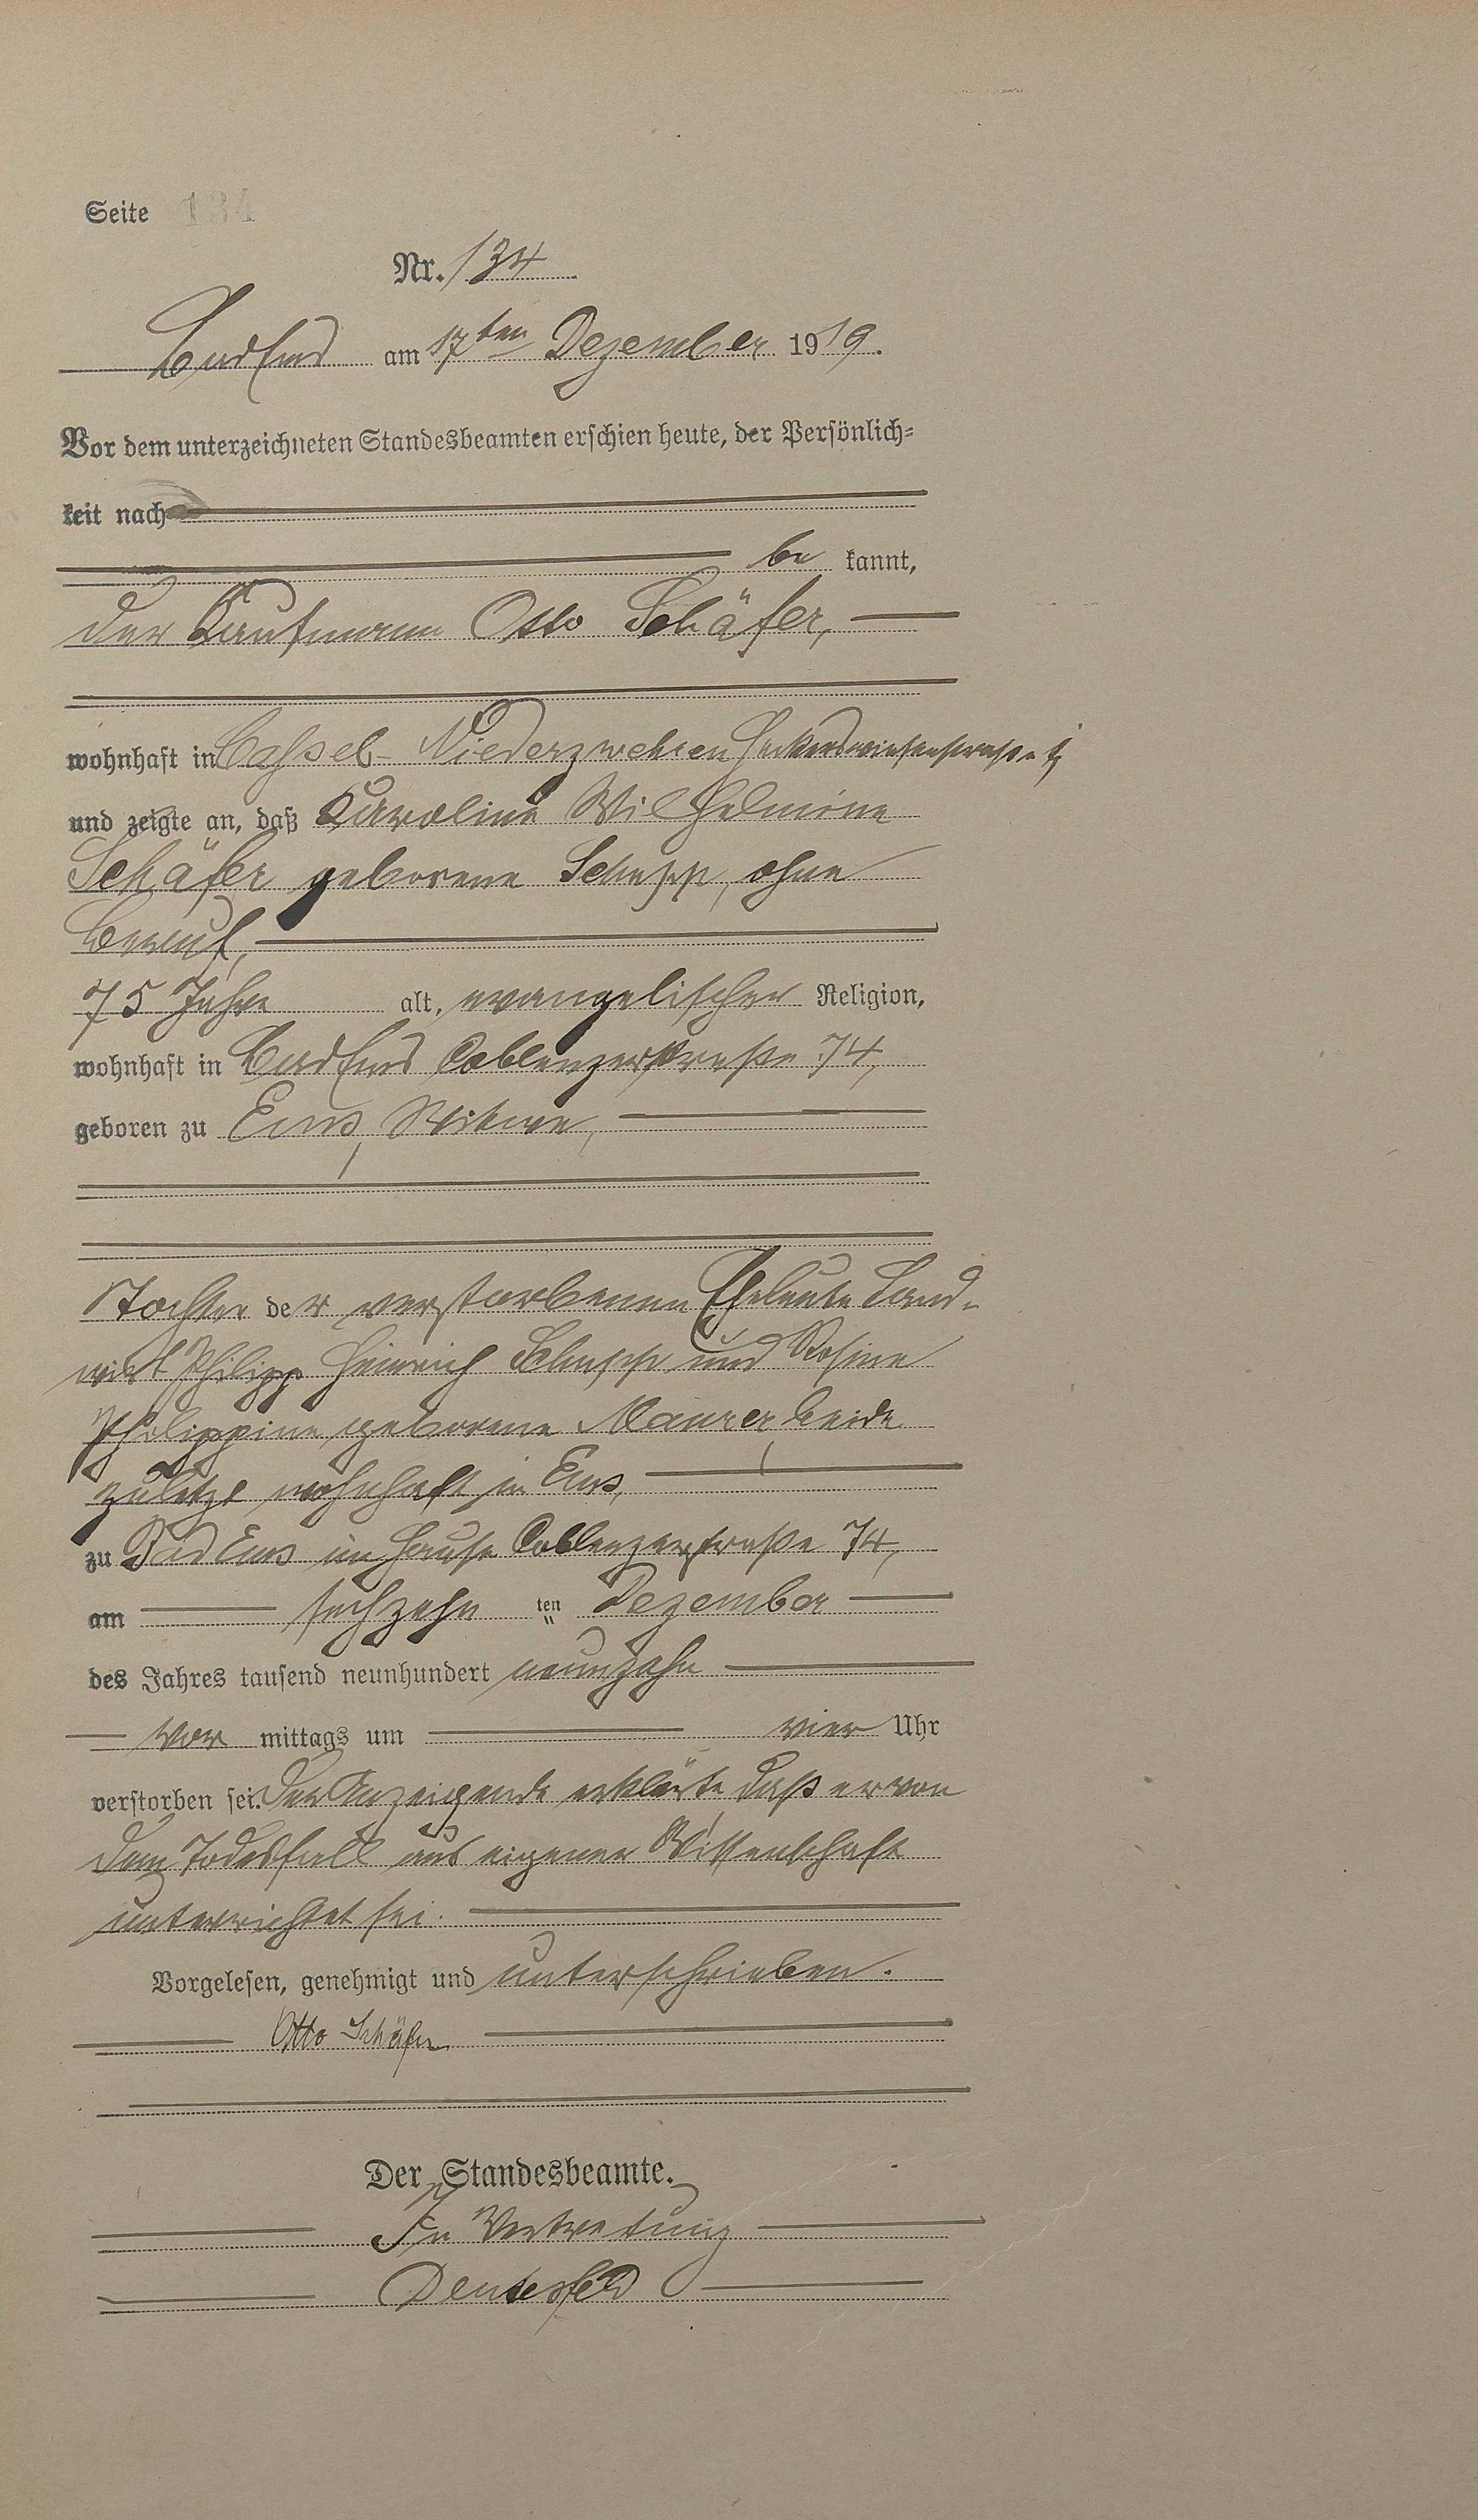 Seite 134
Nr. 134
Bad Ems am 17ten Dezember 1919.
Vor dem unterzeichneten Standesbeamten erschien heute, der Persönlich-
keit nach
be kannt,
der Kaufmann Otto Schäfer,
wohnhaft in Cassel-Niederzwehren
und zeigte an, daß Karoline Wilhelmine
Schäfer geborene Schupp, ohne
Beruf,
75 Jahre alt, evangelischer Religion,
wohnhaft in Bad Ems Coblenzerstraße 74,
geboren zu Ems, Witwe,
Tochter der verstorbenen Eheleute Land-
wirt Philipp Heinrich Schupp und Rosine
Philippine geborene Maurer, beide
zuletzt wohnhaft in Ems,
zu Bad Ems im Hause Coblenzerstraße 74,
am sechzehn ten Dezember
des Jahres tausend neunhundert neunzehn
vor mittags um vier Uhr
verstorben sei. Der Anzeigende erklärte, daß er von
dem Todesfall aus eigener Wissenschaft
unterrichtet sei.
Vorgelesen, genehmigt und unterschrieben.
Otto Schäfer
Der Standesbeamte.
In Vertretung